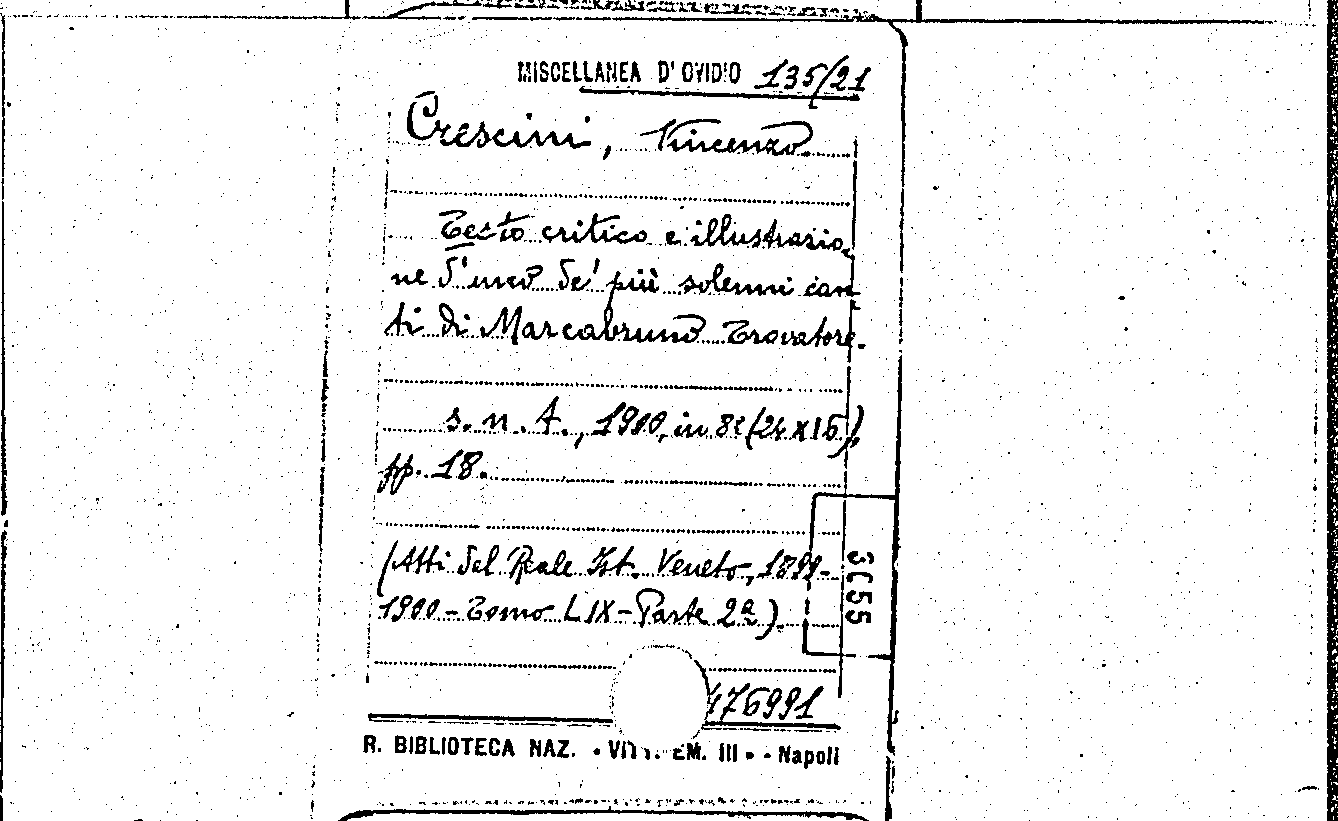 MISCELLANEA D'OVIDIO 135/21
Crescini, Vincenzo
Testo critico e illustrazio-
ne d'uno de' più solenni can-
ti di Marcabruno Trovatore.
s. n. t., 1900, in 8º (24x16),
pp. 18.
(Atti del Reale Ist. Veneto, 1899-
1900 - Tomo LIX - Parte 2ª).
3C55
476991
R. BIBLIOTECA NAZ. « VITT. EM. III » - Napoli